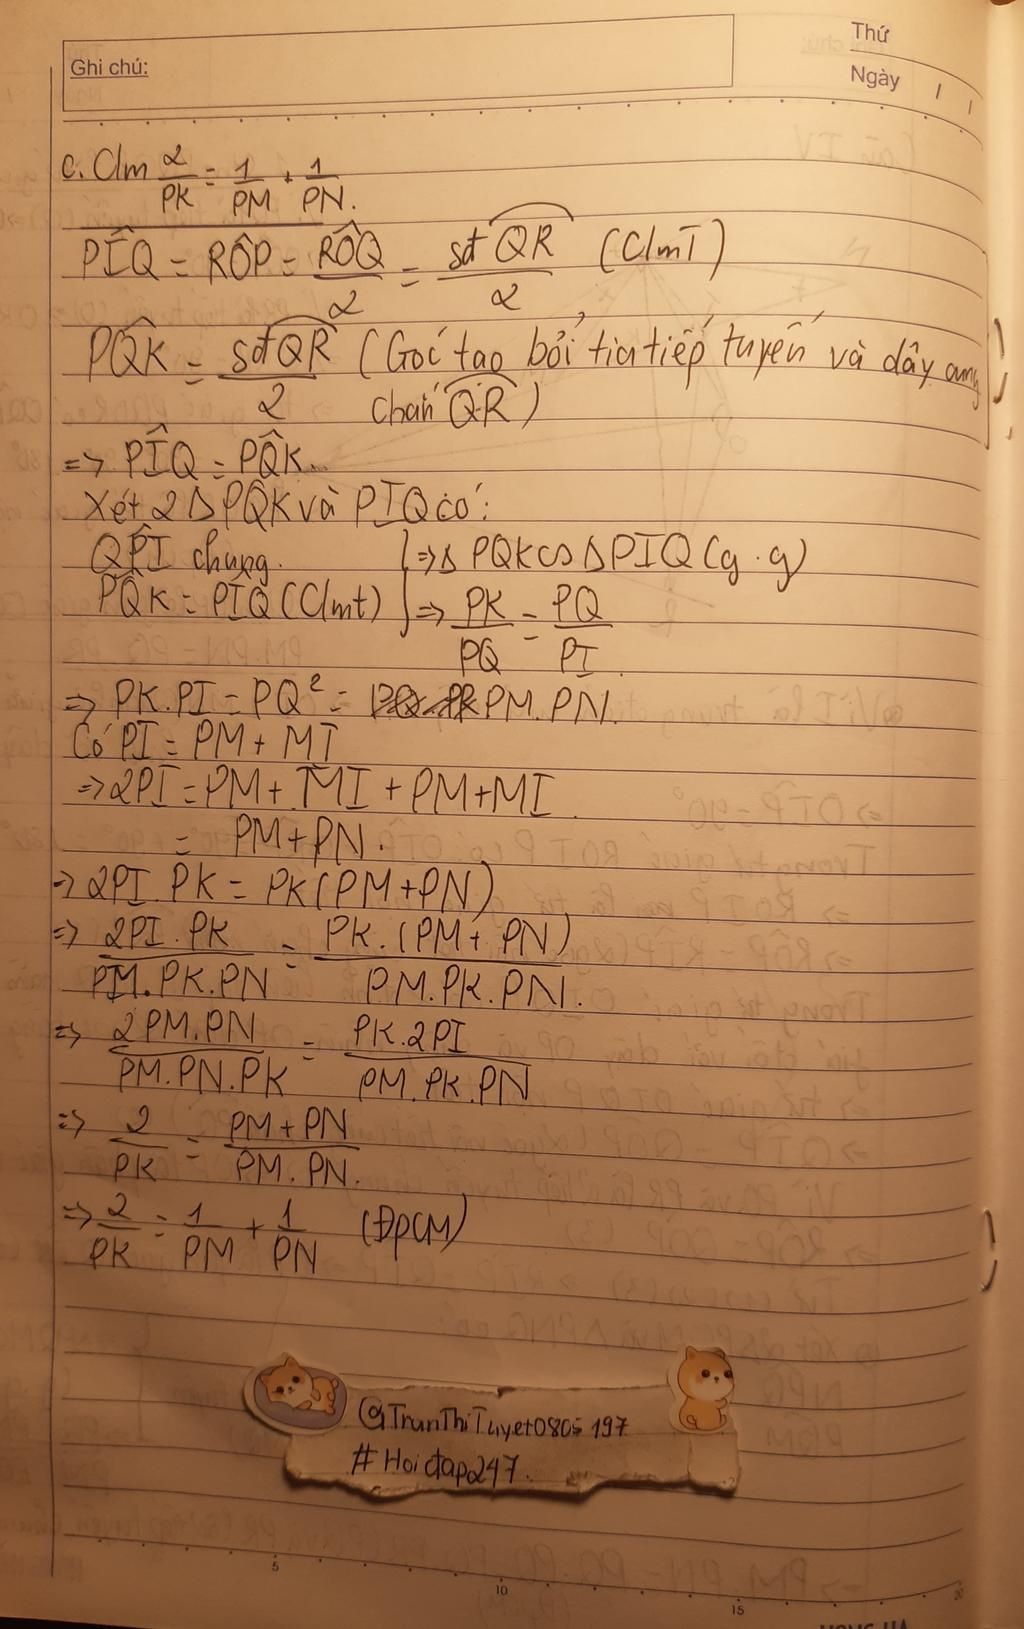 Thứ
Ghi chú:
Ngày
c. Clm 2/PK = 1/PM + 1/PN.
PÎQ = RÔP = RÔQ/2 = sđ QR/2 (ClmT)
PQ̂K = sđ QR/2 (Góc tạo bởi tia tiếp tuyến và dây cung
chắn QR)
=> PÎQ = PQ̂K.
Xét 2 Δ PQK và PIQ có:
QP̂I chung.
PQ̂K = PÎQ (Clmt)
=> Δ PQK ∽ Δ PIQ (g.g)
=> PK/PQ = PQ/PI.
=> PK.PI = PQ² = PM.PN.
Có PI = PM + MI
=> 2PI = PM + MI + PM + MI
= PM + PN.
=> 2PI.PK = PK(PM + PN)
=> 2PI.PK/PM.PK.PN = PK.(PM + PN)/PM.PK.PN.
=> 2PM.PN/PM.PN.PK = PK.2PI/PM.PK.PN
=> 2/PK = PM + PN/PM.PN.
=> 2/PK = 1/PM + 1/PN (ĐpCM)
@TranThiTuyet0805197
#Hoidap247.
5
10
15
20